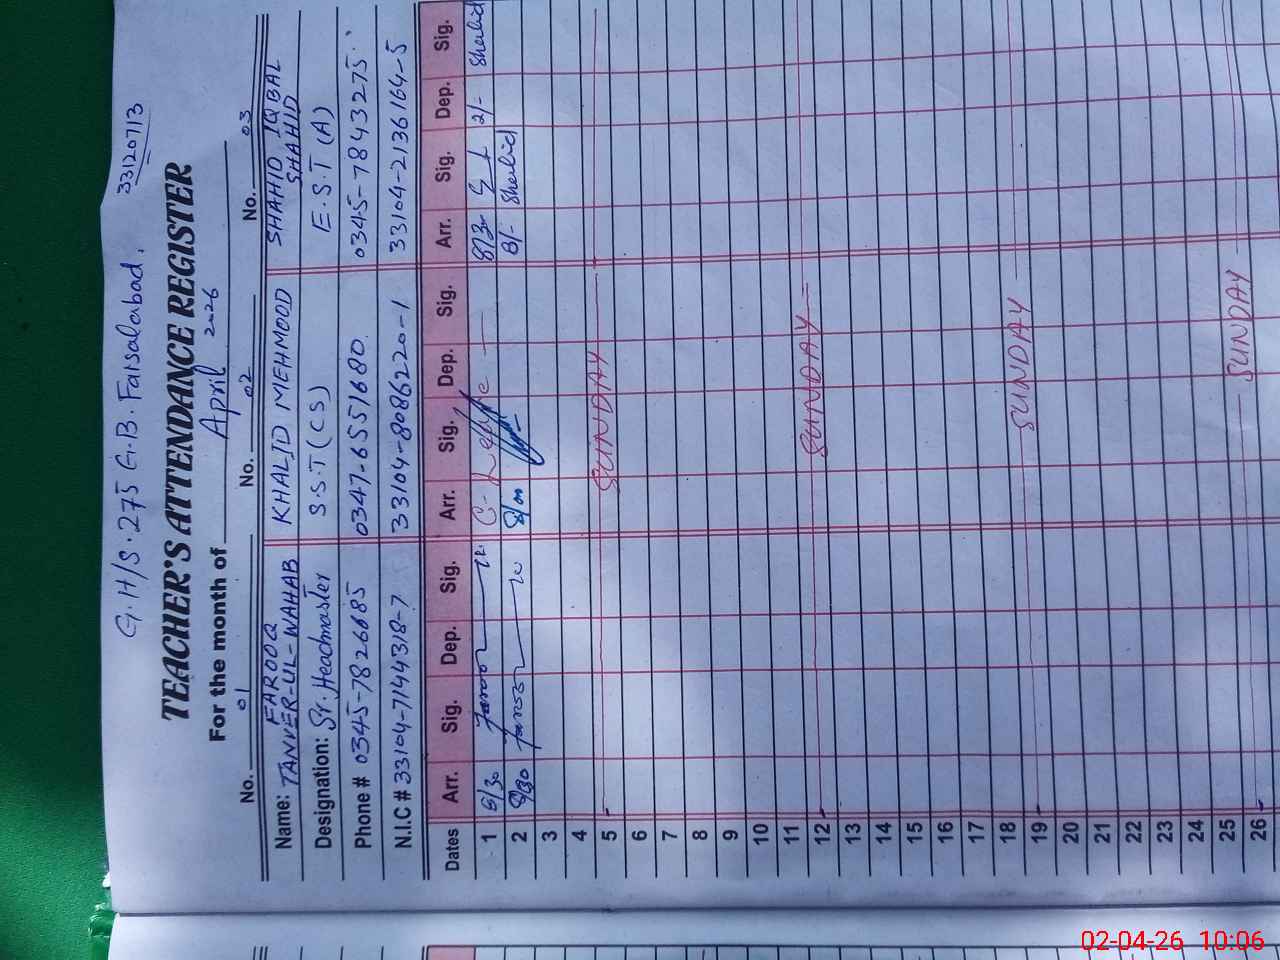 G.H/S. 275 G.B. Faisalabad.
33120713
TEACHER'S ATTENDANCE REGISTER
For the month of April 2026
No. 01 No. 02 No. 03
Name: FAROOQ TANVER-UL-WAHAB KHALID MEHMOOD SHAHID IQBAL SHAHID
Designation: Sr. Headmaster S.S.T (CS) E.S.T (A)
Phone # 0345-7826685 0347-6551680 0345-7843275
N.I.C # 33104-7144318-7 33104-8086220-1 33104-2136164-5
Dates Arr. Sig. Dep. Sig. Arr. Sig. Dep. Sig. Arr. Sig. Dep. Sig.
1 8/30 C-Leave 2/- Shahid
2 8/30 8/00 8/- Shahid
3
4
5 SUNDAY
6
7
8
9
10
11
12 SUNDAY
13
14
15
16
17
18
19 SUNDAY
20
21
22
23
24
25
26 SUNDAY
02-04-26 10:06